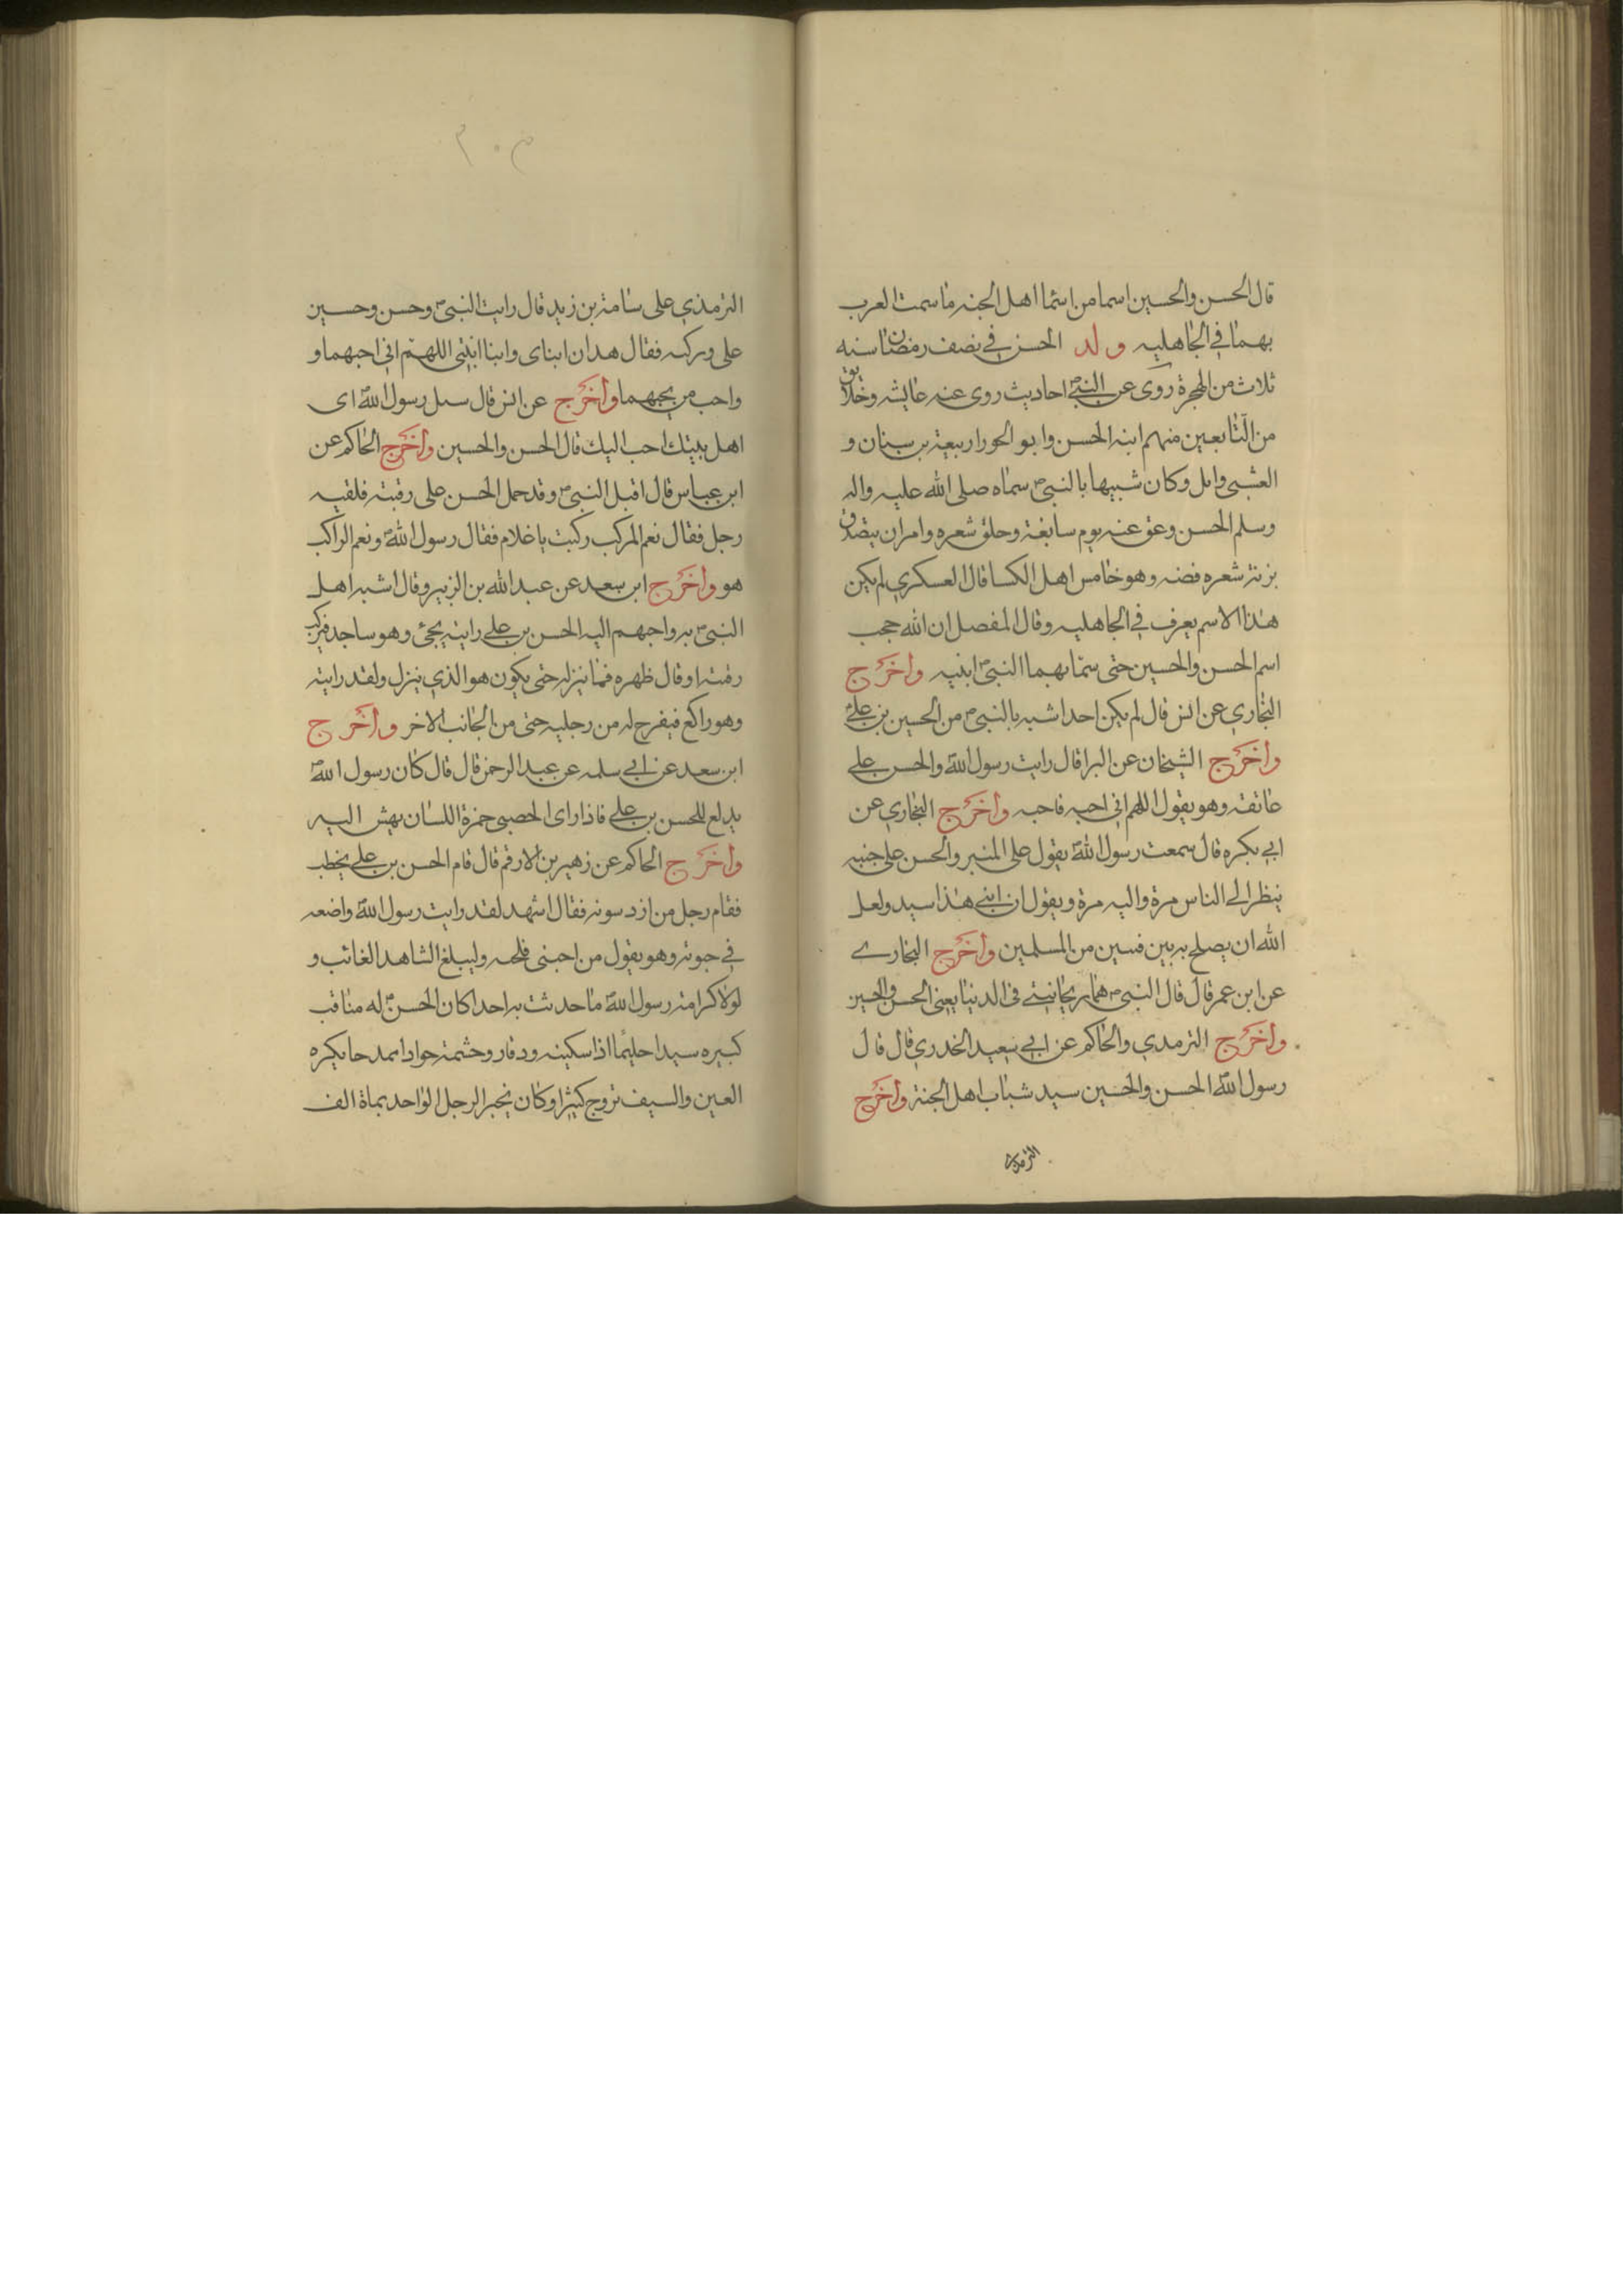 قال الحسن والحسين اسما من اسما اهل الجنه ما سمت العرب
بهما في الجاهليه ولد الحسن في نصف رمضان سنه
ثلاث من الهجرة روى عن النبي احاديث روى عنه عايشه وخلايق
من التابعين منهم ابنه الحسن وابو الحورا ربيعة بن سنان و
الشعبي وايل وكان شبيها بالنبي سماه صلى الله عليه واله
وسلم الحسن وعق عنه يوم سابعة وحلق شعره وامر ان يتصدق
بزنة شعره فضه وهو خامس اهل الكسا قال العسكري لم يكن
هذا الاسم يعرف في الجاهليه وقال المفضل ان الله حجب
اسم الحسن والحسين حتى سما بهما النبي ابنيه واخرج
البخاري عن انس قال لم يكن احدا شبه بالنبي من الحسين بن علي
واخرج الشيخان عن البرا قال رايت رسول الله والحسن علي
عاتقه وهو يقول اللهم اني احبه فاحبه واخرج البخاري عن
ابي بكره قال سمعت رسول الله يقول على المنبر والحسن على جنبه
ينظر الى الناس مرة واليه مرة ويقول ان ابني هذا سيد ولعل
الله ان يصلح به بين فسين من المسلمين واخرج البخاري
عن ابن عمر قال قال النبي هما ريحانيتي في الدنيا يعني الحسن والحسين
واخرج الترمدي والحاكم عن ابي سعيد الخدري قال قال
رسول الله الحسن والحسين سيد شباب اهل الجنة واخرج
الترمذي
٣٠٢
الترمذي على سامة بن زيد قال رايت النبي وحسن وحسين
على وركه فقال هدان ابناى وابنا ابنتي اللهم اني احبهما و
واحب من يحبهما واخرج عن انس قال سىل رسول الله اى
اهل بيتك احب اليك قال الحسن والحسين واخرج الحاكم عن
ابن عباس قال اقبل النبي وقد حمل الحسن على رقبته فلقيه
رجل فقال نعم المركب ركبت يا غلام فقال رسول الله ونعم الراكب
هو واخرج ابن سعد عن عبد الله بن الزبير وقال اشبه اهل
النبي به واحبهم اليه الحسن بن علي رايته يجئ وهو ساجد فيركب
رقبته او قال ظهره فما ينزله حتى يكون هو الذي ينزل ولقد رايته
وهو راكع فيفرج له من رجليه حتى من الجانب الاخر واخرج
ابن سعد عن ابي سلمه عن عبد الرحمن قال قال كان رسول الله
يدلع للحسن بن علي فاذا راى الصبي حمرة اللسان يهش اليه
واخرج الحاكم عن زهير بن الارقم قال قام الحسن بن علي يخطب
فقام رجل من ازد سونه فقال اشهد لقد رايت رسول الله واضعه
في حبوته وهو يقول من احبني فلحبه وليبلغ الشاهد الغائب و
لولا كرامة رسول الله ما حدثت به احدا كان الحسن له مناقب
كبيره سيدا حليما اذا سكينه ودقار وحشمة جوادا ممدحا يكره
العين والسيف تزوج كثيرا وكان يجبر الرجل الواحد بماة الف